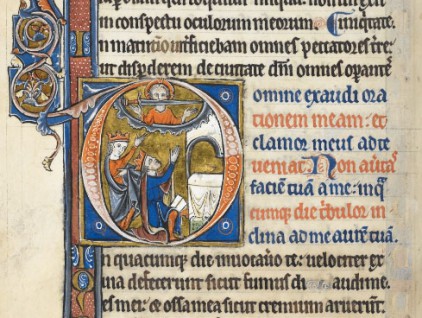 in conspectu oculorum meorum iniquitatē.
In matutino int̃ficiebam omnes peccatores tr̄e:
ut disperderem de ciuitate dn̄i omnes operantes
Domine exaudi ora
tionem meam: et
clamor meus ad te
ueniat. Non auertas
faciē tuā a me: inq̄
cumq; die tribulor in
clina ad me aurem tuā.
In quacumque die inuocauero te: uelociter ex
Quia defecerunt sicut fumus di audi me.
es mei: et ossa mea sicut cremium aruerunt.